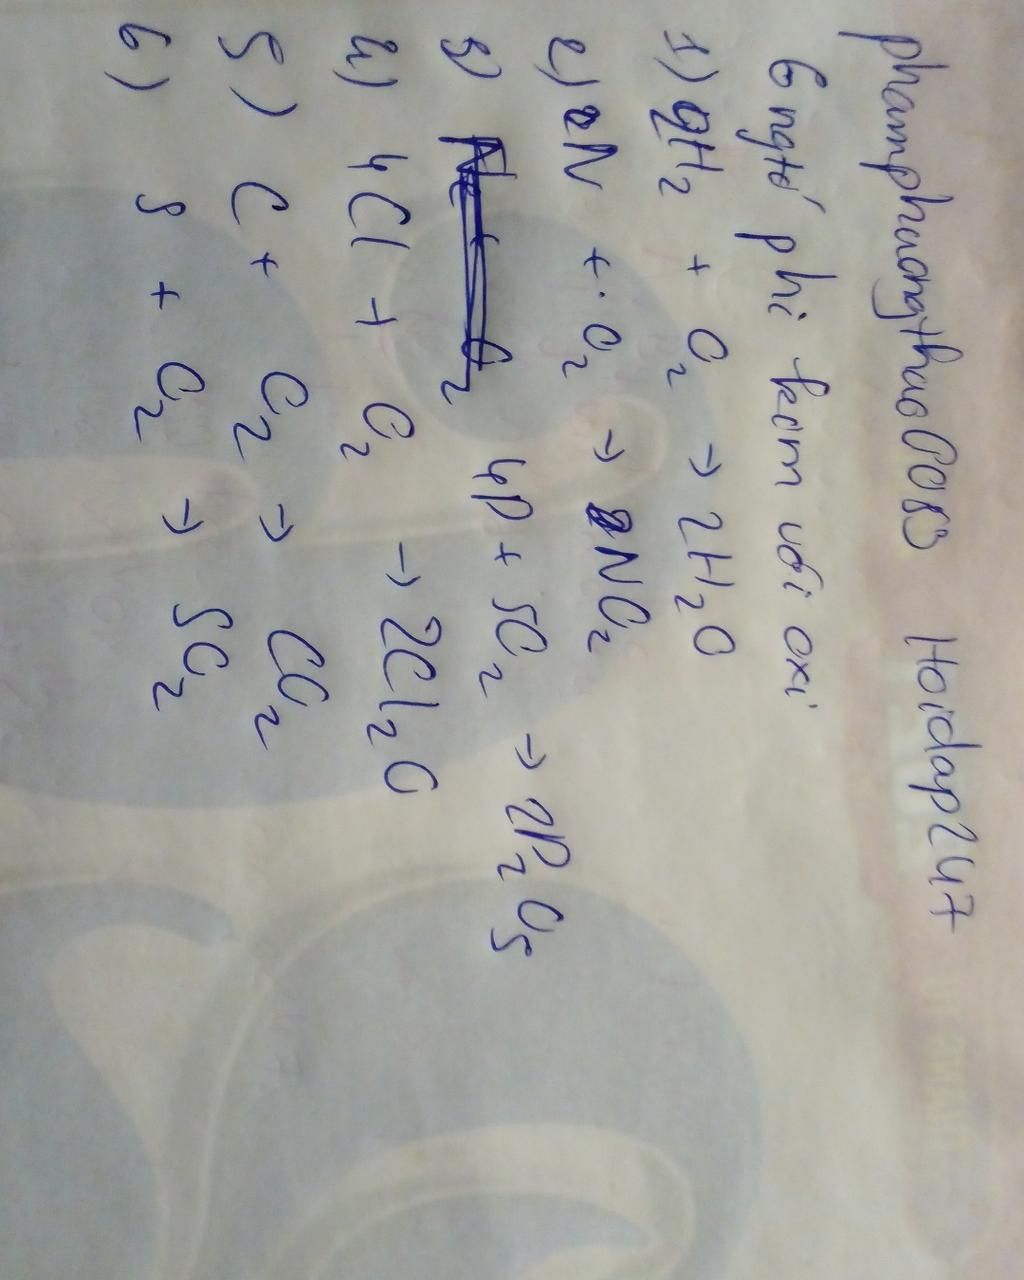 phamphuongthao0083 Hoidap247
6 ngtố phi kim với oxi
1) 2H₂ + O₂ → 2H₂O
2) 2N + O₂ → 2NO₂
3) 4P + 5O₂ → 2P₂O₅
4) 4Cl + O₂ → 2Cl₂O
5) C + O₂ → CO₂
6) S + O₂ → SO₂